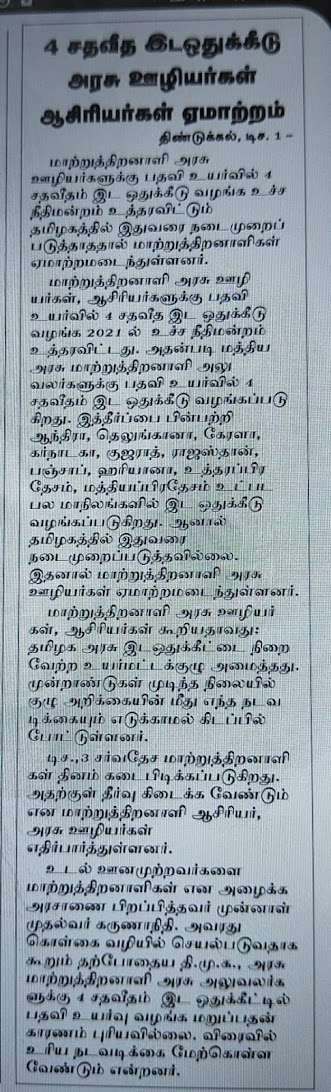 4 சதவீத இடஒதுக்கீடு
அரசு ஊழியர்கள்
ஆசிரியர்கள் ஏமாற்றம்
திண்டுக்கல், டிச. 1 –
மாற்றுத்திறனாளி அரசு
ஊழியர்களுக்கு பதவி உயர்வில் 4
சதவீதம் இட ஒதுக்கீடு வழங்க உச்ச
நீதிமன்றம் உத்தரவிட்டும்
தமிழகத்தில் இதுவரை நடைமுறைப்
படுத்தாததால் மாற்றுத்திறனாளிகள்
ஏமாற்றமடைந்துள்ளனர்.
மாற்றுத்திறனாளி அரசு ஊழி
யர்கள், ஆசிரியர்களுக்கு பதவி
உயர்வில் 4 சதவீத இட ஒதுக்கீடு
வழங்க 2021 ல் உச்ச நீதிமன்றம்
உத்தரவிட்டது. அதன்படி மத்திய
அரசு மாற்றுத்திறனாளி அலு
வலர்களுக்கு பதவி உயர்வில் 4
சதவீதம் இட ஒதுக்கீடு வழங்கப்படு
கிறது. இத்தீர்ப்பை பின்பற்றி
ஆந்திரா, தெலுங்கானா, கேரளா,
கர்நாடகா, குஜராத், ராஜஸ்தான்,
பஞ்சாப், ஹரியானா, உத்தரப்பிர
தேசம், மத்தியப்பிரதேசம் உட்பட
பல மாநிலங்களில் இட ஒதுக்கீடு
வழங்கப்படுகிறது. ஆனால்
தமிழகத்தில் இதுவரை
நடைமுறைப்படுத்தவில்லை.
இதனால் மாற்றுத்திறனாளி அரசு
ஊழியர்கள் ஏமாற்றமடைந்துள்ளனர்.
மாற்றுத்திறனாளி அரசு ஊழியர்
கள், ஆசிரியர்கள் கூறியதாவது:
தமிழக அரசு இடஒதுக்கீட்டை நிறை
வேற்ற உயர்மட்டக்குழு அமைத்தது.
மூன்றாண்டுகள் முடிந்த நிலையில்
குழு அறிக்கையின் மீது எந்த நடவ
டிக்கையும் எடுக்காமல் கிடப்பில்
போட்டுள்ளனர்.
டிச.,3 சர்வதேச மாற்றுத்திறனாளி
கள் தினம் கடைபிடிக்கப்படுகிறது.
அதற்குள் தீர்வு கிடைக்க வேண்டும்
என மாற்றுத்திறனாளி ஆசிரியர்,
அரசு ஊழியர்கள்
எதிர்பார்த்துள்ளனர்.
உடல் ஊனமுற்றவர்களை
மாற்றுத்திறனாளிகள் என அழைக்க
அரசாணை பிறப்பித்தவர் முன்னாள்
முதல்வர் கருணாநிதி. அவரது
கொள்கை வழியில் செயல்படுவதாக
கூறும் தற்போதைய தி.மு.க., அரசு
மாற்றுத்திறனாளி அரசு அலுவலர்க
ளுக்கு 4 சதவீதம் இட ஒதுக்கீட்டில்
பதவி உயர்வு வழங்க மறுப்பதன்
காரணம் புரியவில்லை. விரைவில்
உரிய நடவடிக்கை மேற்கொள்ள
வேண்டும் என்றனர்.